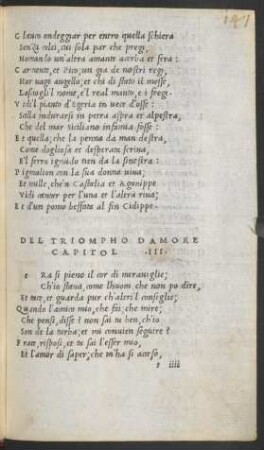 147
Glauco ondeggiar per entro quella schiera
Senza colei, cui sola par che pregi,
Nomando un'altra amante acerba et fera:
Carmente, et Pico; un gia de nostri regi,
Hor vago augello; et chi di stato il mosse,
Lasciogli'l nome, e'l real manto, e i fregi.
Vidi'l pianto d'Egeria in vece d'osse:
Scilla indurarsi in petra aspra et alpestra,
Che del mar Siciliano infamia fosse:
Et quella; che la penna da man destra,
Come dogliosa et desperata scriva,
E'l ferro ignudo tien da la sinestra:
Pigmalion con la sua donna viva;
Et mille, che'n Castalia et Aganippe
Vidi cantar per l'una et l'altra riva;
Et d'un pomo beffata al fin Cidippe.
DEL TRIOMPHO D'AMORE
CAPITOL. III.
e Ra si pieno il cor di meraviglie;
Ch'io stava, come l'huom che non po dire,
Et tace, et guarda pur ch'altri'l consiglie;
Quando l'amico mio, che fai; che mire;
Che pensi, disse? non sai tu ben, ch'io
Son de la turba; et mi convien seguire?
Frate, risposi, et tu sai l'esser mio,
Et l'amor di saper; che m'ha si acceso,
s iiii